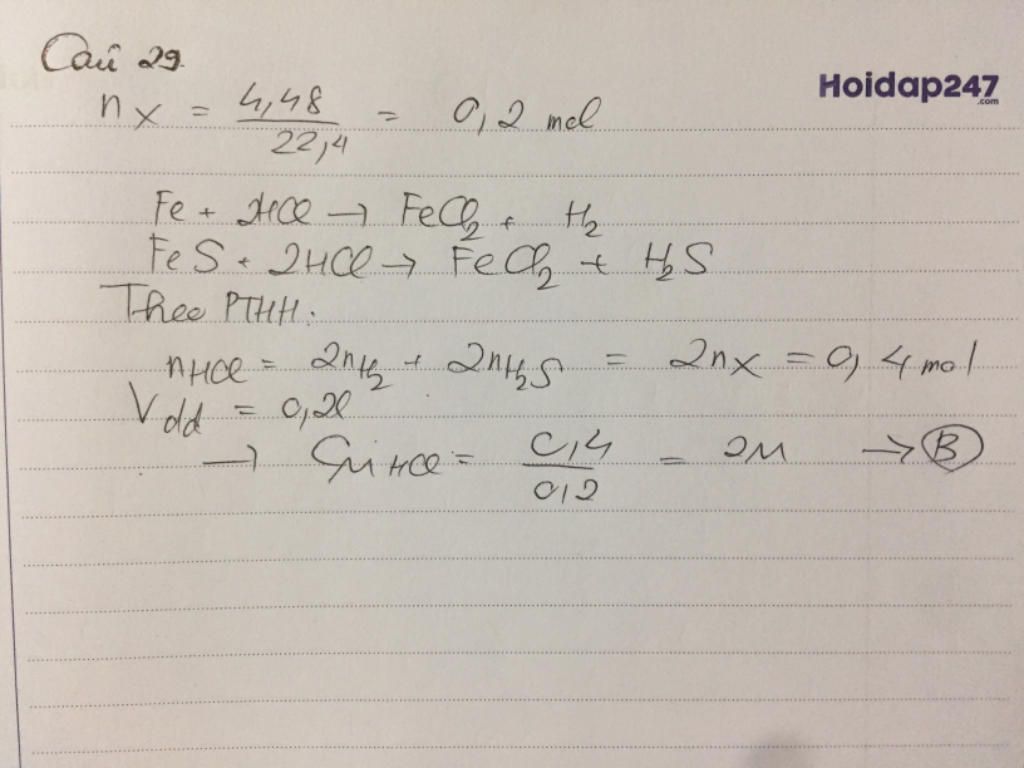 Câu 29.
Hoidap247
.com
nX = 4,48 / 22,4 = 0,2 mol
Fe + 2HCl → FeCl2 + H2
FeS + 2HCl → FeCl2 + H2S
Theo PTHH:
nHCl = 2nH2 + 2nH2S = 2nX = 0,4 mol
Vdd = 0,2l
→ CM HCl = 0,4 / 0,2 = 2M → B